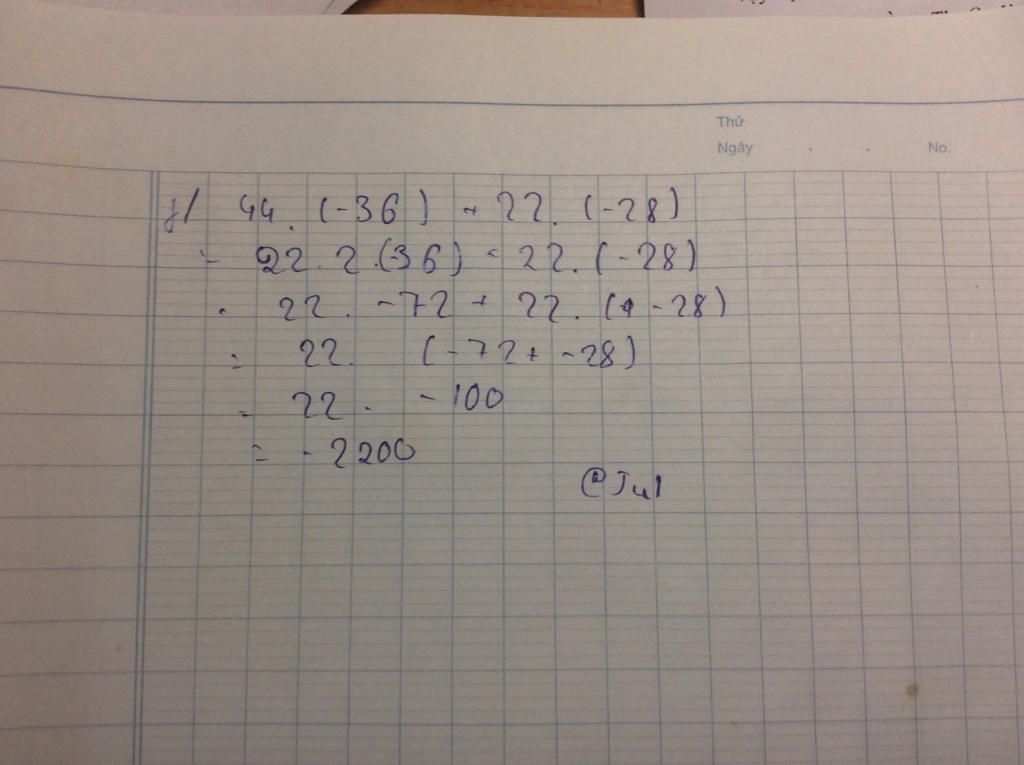 Thứ
Ngày . . No.
j/ 44. (-36) + 22. (-28)
= 22. 2.(-36) + 22. (-28)
= 22. -72 + 22. (-28)
= 22. (-72 + -28)
= 22. -100
= -2200
@Jul